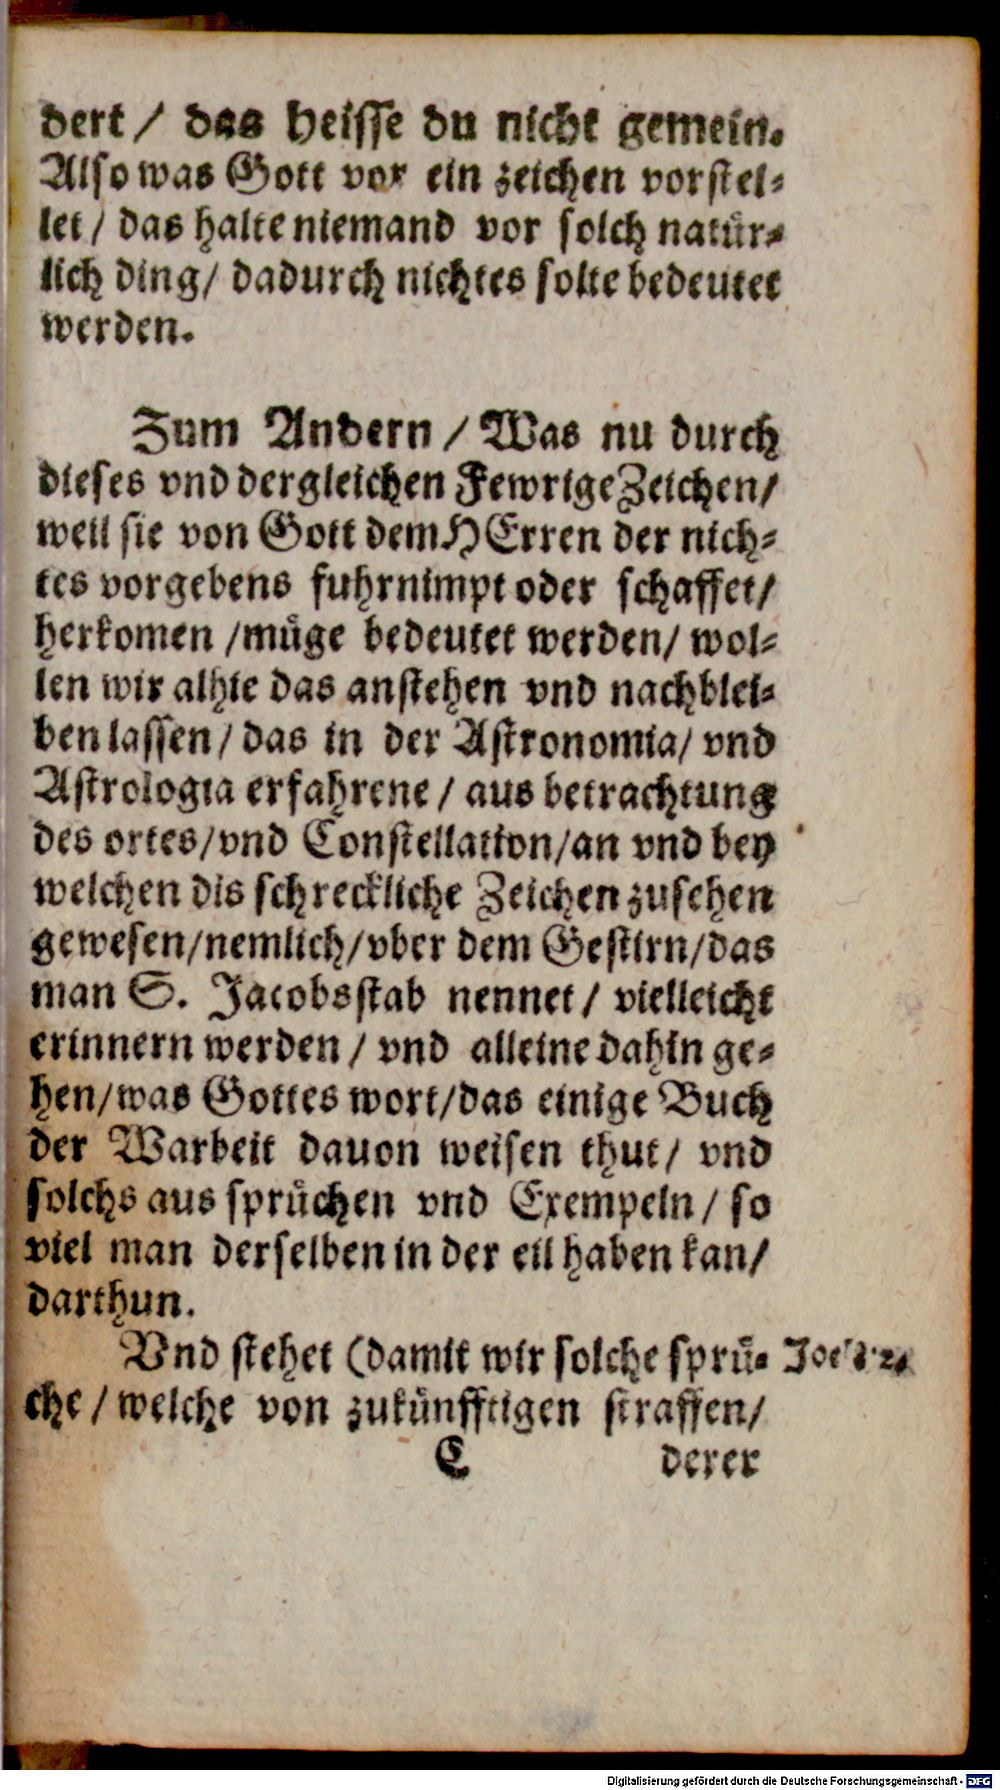 dert / das heisse du nicht gemein.
Also was Gott vor ein zeichen vorstel⸗
let / das halte niemand vor solch natuͤr⸗
lich ding / dadurch nichtes solte bedeutet
werden.
Zum Andern / Was nu durch
dieses vnd dergleichen Fewrige Zeichen /
weil sie von Gott dem HErren der nich⸗
tes vorgebens fuhrnimpt oder schaffet /
herkomen / muͤge bedeutet werden / wol⸗
len wir alhie das anstehen vnd nachblei⸗
ben lassen / das in der Astronomia / vnd
Astrologia erfahrene / aus betrachtung
des ortes / vnd Constellation / an vnd bey
welchen dis schreckliche Zeichen zusehen
gewesen / nemlich / vber dem Gestirn / das
man S. Jacobsstab nennet / vielleicht
erinnern werden / vnd alleine dahin ge⸗
hen / was Gottes wort / das einige Buch
der Warheit dauon weisen thut / vnd
solchs aus spruͤchen vnd Exempeln / so
viel man derselben in der eil haben kan /
darthun.
Vnd stehet (damit wir solche spruͤ⸗
che / welche von zukuͤnfftigen straffen /
C derer
Digitalisierung gefördert durch die Deutsche Forschungsgemeinschaft - DFG